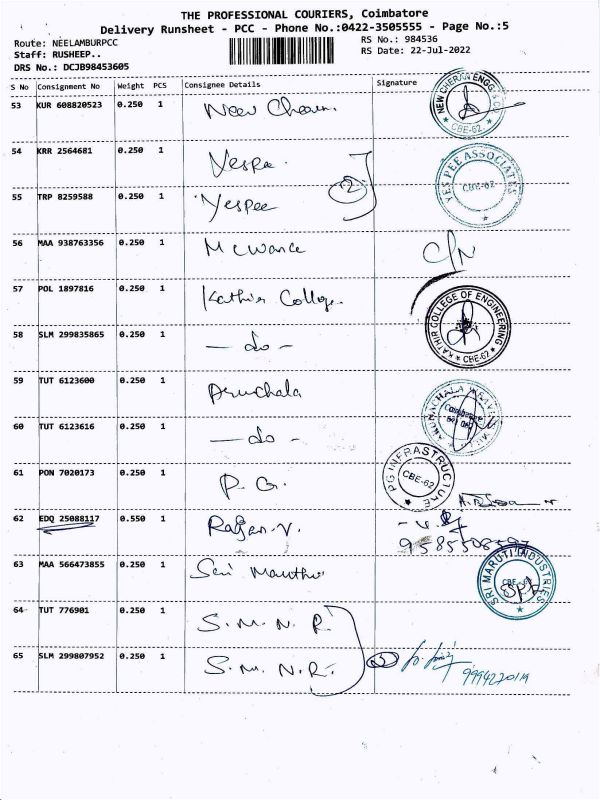 THE PROFESSIONAL COURIERS, Coimbatore
Delivery Runsheet - PCC - Phone No.:0422-3505555 - Page No.:5
Route: NEELAMBURPCC RS No.: 984536
Staff: RUSHEEP.. RS Date: 22-Jul-2022
DRS No.: DCJB98453605
S No Consignment No Weight PCS Consignee Details Signature
53 KUR 608820523 0.250 1 NEW CHERAN ENGG CBE-62
54 KRR 2564681 0.250 1 Yespee 2 YES PEE ASSOCIATES CBE-62
55 TRP 8259588 0.250 1 Yespee
56 MAA 938763356 0.250 1 C/N
57 POL 1897816 0.250 1 Kathir College. KATHIR COLLEGE OF ENGINEERING CBE-62
58 SLM 299835865 0.250 1 - do -
59 TUT 6123600 0.250 1 Coimbatore
60 TUT 6123616 0.250 1 - do -
61 PON 7020173 0.250 1 P. G. PG INFRASTRUCTURE CBE-62
62 EDQ 25088117 0.550 1 Rajan.V.
63 MAA 566473855 0.250 1 Sri Maruthi SRI MARUTI INDUSTRIES CBE
64 TUT 776901 0.250 1 S. M. N. R.
65 SLM 299807952 0.250 1 S. M. N. R. 2